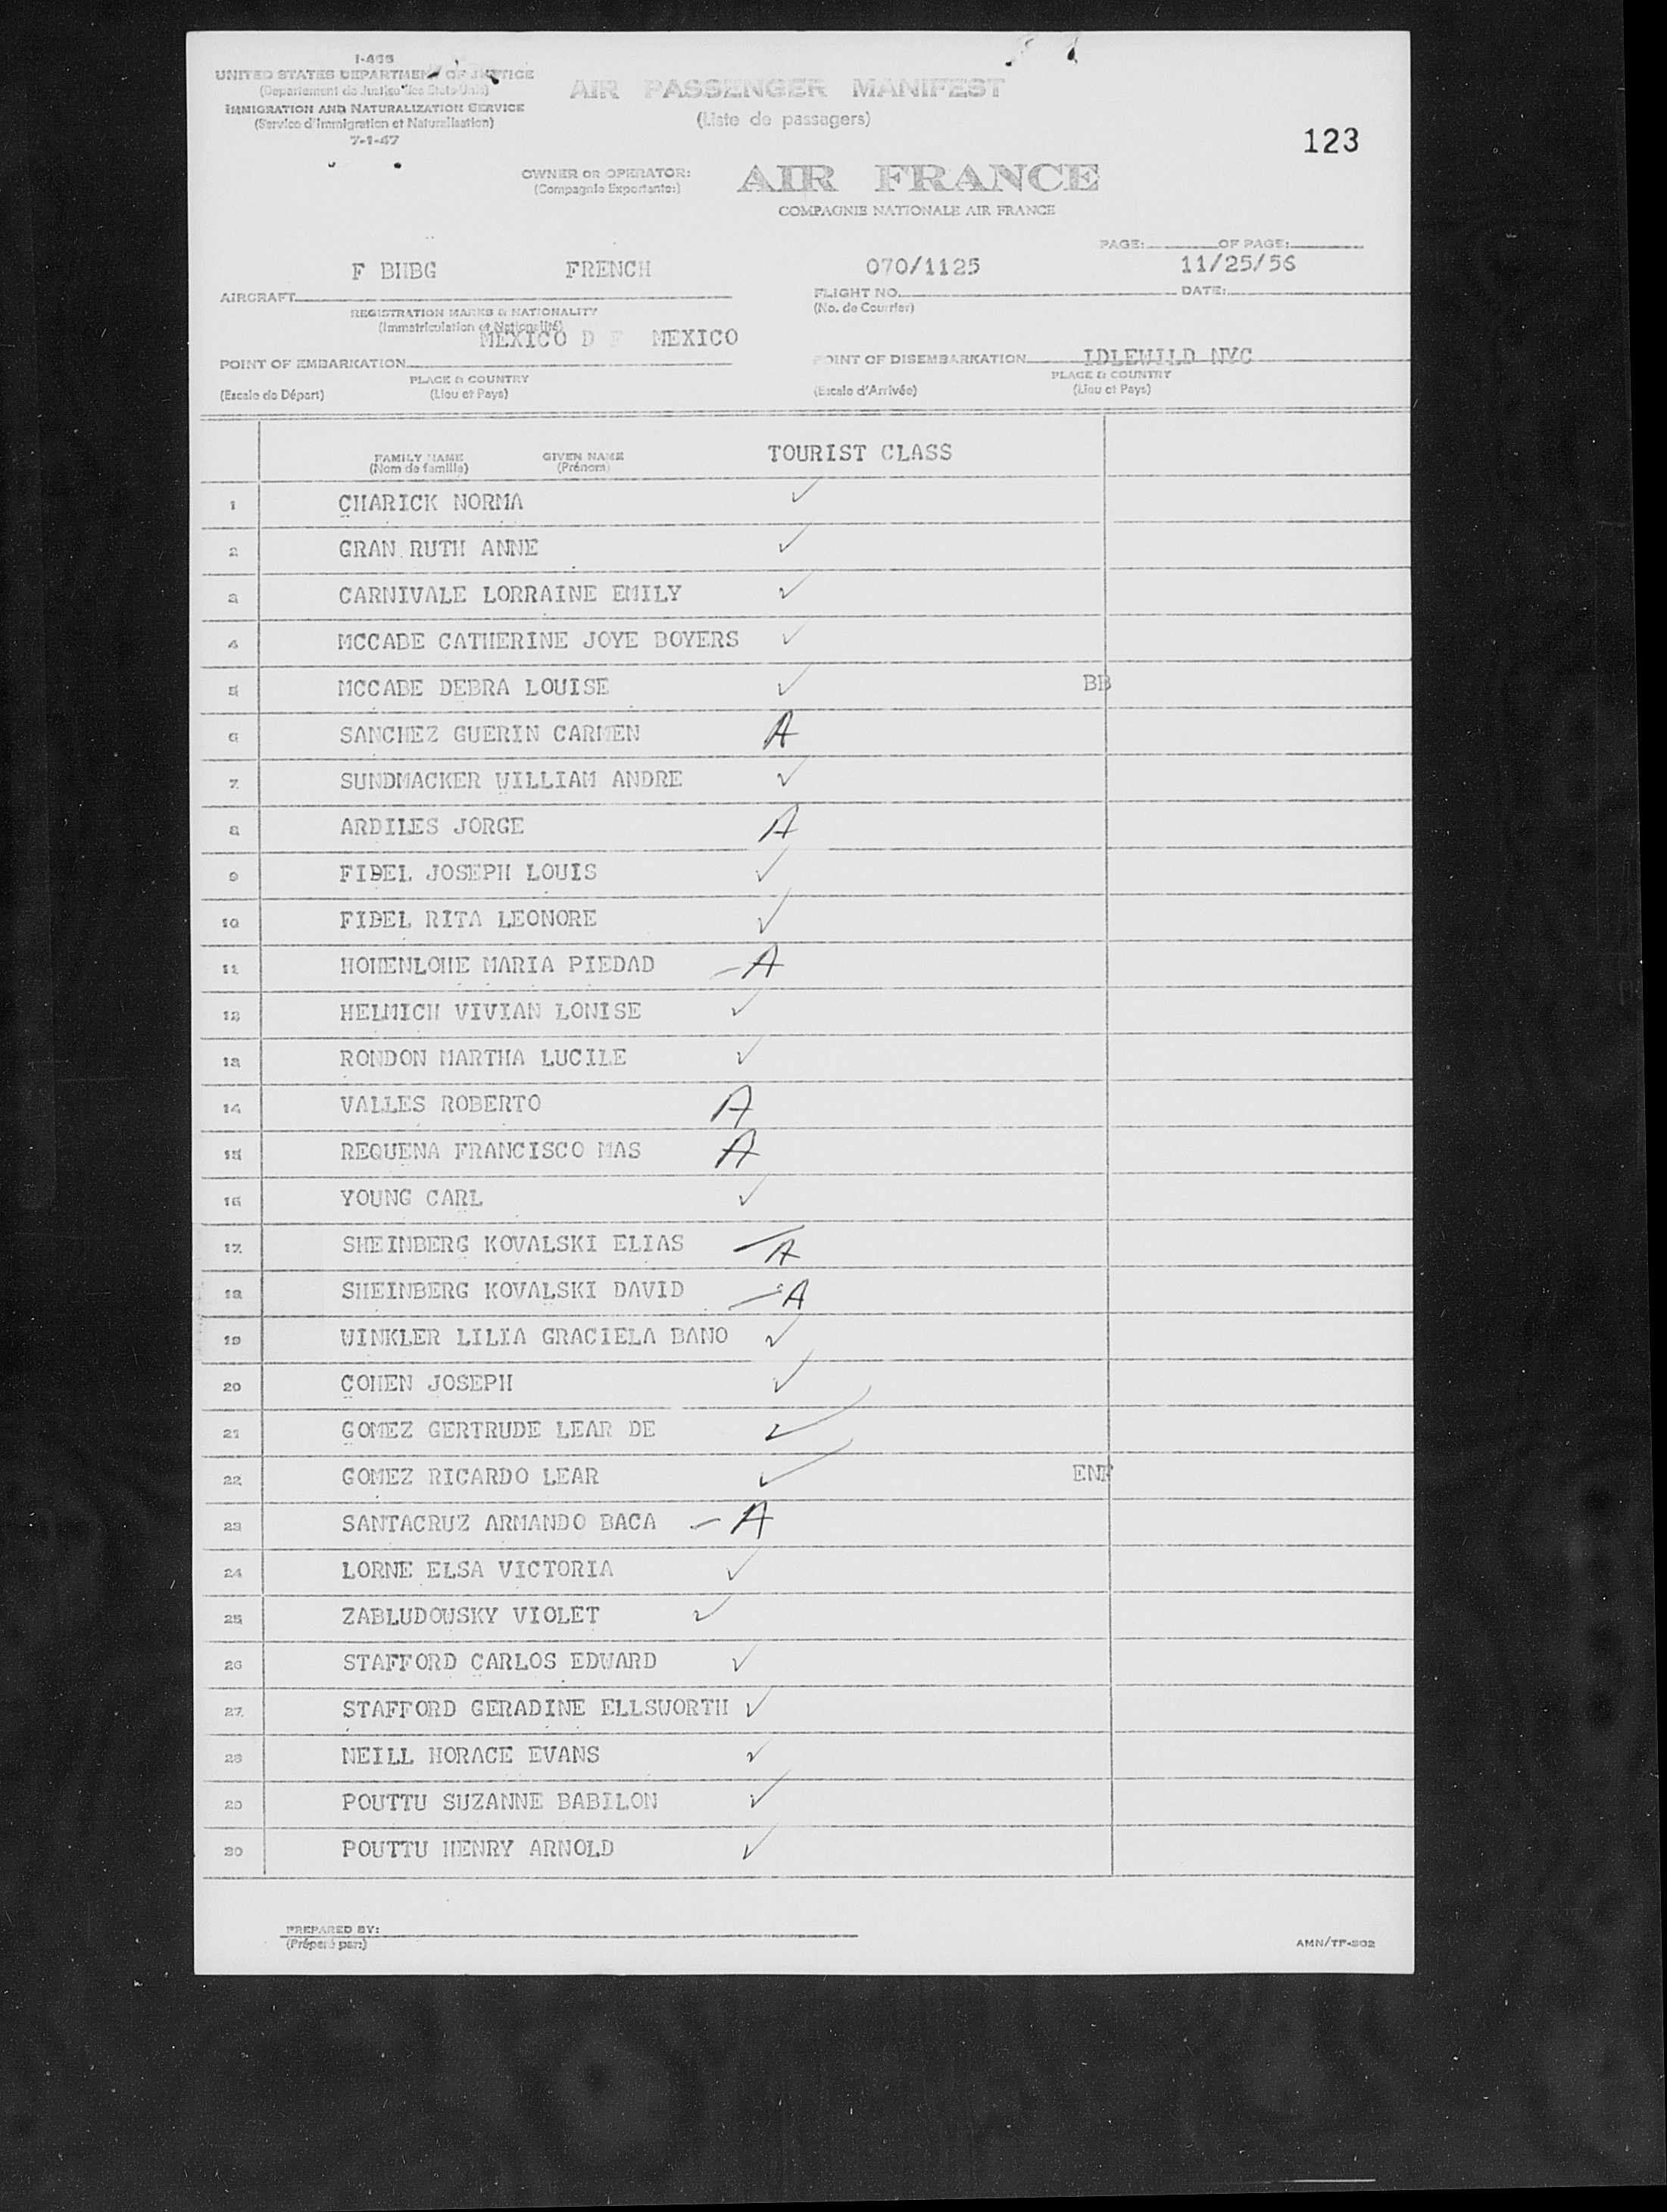 I-466
UNITED STATES DEPARTMENT OF JUSTICE
(Departement de Justice des Etats-Unis)
IMMIGRATION AND NATURALIZATION SERVICE
(Service d'Immigration et Naturalisation)
7-1-47
AIR PASSENGER MANIFEST
(Liste de passagers)
123
OWNER OR OPERATOR: AIR FRANCE
(Compagnie Exportante:)
COMPAGNIE NATIONALE AIR FRANCE
PAGE: OF PAGE:
F BHBG FRENCH 070/1125 11/25/56
AIRCRAFT FLIGHT NO. DATE:
REGISTRATION MARKS & NATIONALITY (No. de Courrier)
(Immatriculation et Nationalité)
MEXICO D F MEXICO
POINT OF EMBARKATION POINT OF DISEMBARKATION IDLEWILD NYC
PLACE & COUNTRY PLACE & COUNTRY
(Escale de Départ) (Lieu et Pays) (Escale d'Arrivée) (Lieu et Pays)
FAMILY NAME GIVEN NAME TOURIST CLASS
(Nom de famille) (Prénom)
1 CHARICK NORMA ✓
2 GRAN RUTH ANNE ✓
3 CARNIVALE LORRAINE EMILY ✓
4 MCCABE CATHERINE JOYE BOYERS ✓
5 MCCABE DEBRA LOUISE ✓ BB
6 SANCHEZ GUERIN CARMEN A
7 SUNDMACKER WILLIAM ANDRE ✓
8 ARDILES JORGE A
9 FIDEL JOSEPH LOUIS ✓
10 FIDEL RITA LEONORE ✓
11 HOHENLOHE MARIA PIEDAD – A
12 HELMICH VIVIAN LONISE ✓
13 RONDON MARTHA LUCILE ✓
14 VALLES ROBERTO A
15 REQUENA FRANCISCO MAS A
16 YOUNG CARL ✓
17 SHEINBERG KOVALSKI ELIAS – A
18 SHEINBERG KOVALSKI DAVID – A
19 WINKLER LILIA GRACIELA BANO ✓
20 COHEN JOSEPH ✓
21 GOMEZ GERTRUDE LEAR DE ✓
22 GOMEZ RICARDO LEAR ✓ ENF
23 SANTACRUZ ARMANDO BACA – A
24 LORNE ELSA VICTORIA ✓
25 ZABLUDOWSKY VIOLET ✓
26 STAFFORD CARLOS EDWARD ✓
27 STAFFORD GERADINE ELLSWORTH ✓
28 NEILL HORACE EVANS ✓
29 POUTTU SUZANNE BABILON ✓
30 POUTTU HENRY ARNOLD ✓
PREPARED BY:
(Préparé par:) AMN/TF-302